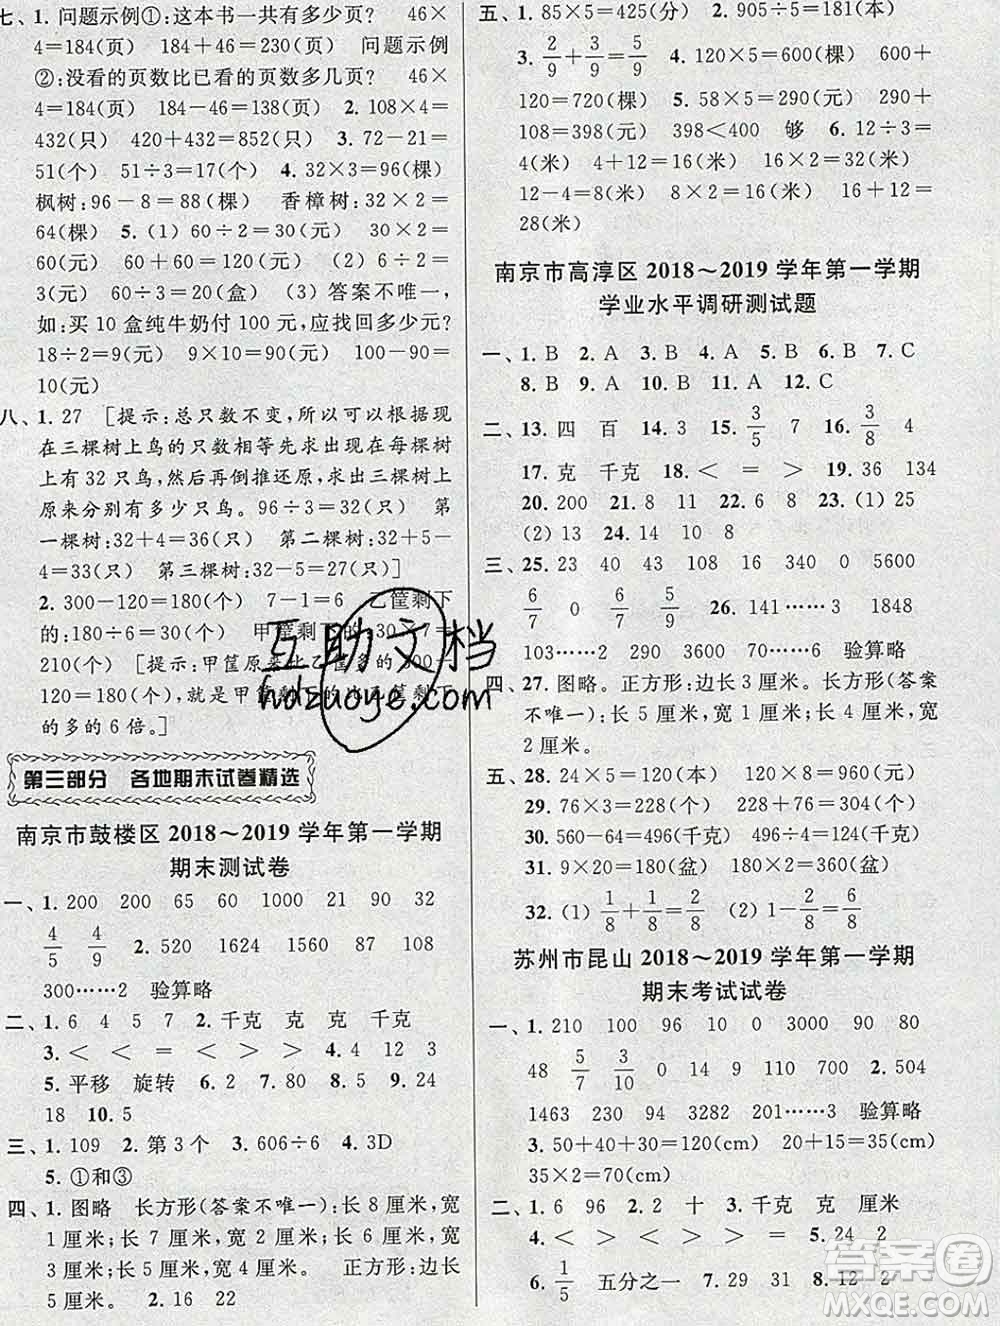 七、1. 问题示例①:这本书一共有多少页? 46×
4=184(页) 184+46=230(页) 问题示例
②:没看的页数比已看的页数多几页? 46×
4=184(页) 184-46=138(页) 2. 108×4=
432(只) 420+432=852(只) 3. 72-21=
51(个) 51÷3=17(个) 4. 32×3=96(棵)
枫树:96-8=88(棵) 香樟树:32×2=
64(棵) 5. (1) 60÷2=30(元) 30×2=
60(元) (2) 60÷
3(元) 60÷3=20(盒) (3) 答案不唯一,
如:买 10 盒纯牛奶付 100 元,应找回多少元?
18÷2=9(元) 9×10=90(元) 100-90=
10(元)
八、1. 27 [提示:总只数不变,所以可以根据现
在三棵树上鸟的只数相等先求出现在每棵树
上有 32 只鸟,然后再倒推还原,求出三棵树上
原来分别有多少只鸟。96÷3=32(只) 第
一棵树:32+4=36(只) 第二棵树:32+5-
4=33(只) 第三棵树:32-5=27(只)]
2. 300-120=180(个) 7-1=6 乙筐剩下
的:180÷6=30(个) 甲筐剩下的:30×7=
210(个) [提示:甲筐原来比乙筐多的 300-
120=180(个),就是甲筐剩下的比乙筐剩下
的多的 6 倍。]
第三部分 各地期末试卷精选
南京市鼓楼区 2018～2019 学年第一学期
期末测试卷
一、1. 200 200 65 60 1000 21 90 32
4/5 4/9 2. 520 1624 1560 87 108
300……2 验算略
二、1. 6 4 5 7 2. 千克 克 克 千克
3. < < = < > > 4. 4 12 3
5. 平移 旋转 6. 2 7. 4 8. 5 9. 24
18 10. 5
三、1. 109 2. 第 3 个 3. 606÷6 4. 3D
5. ①和③
四、1. 图略 长方形(答案不唯一):长 8 厘米,宽
1 厘米;长 7 厘米,宽 2 厘米;长 6 厘米,宽
3 厘米;长 5 厘米,宽 4 厘米。 正方形:边
长 5 厘米。 2. 16 22
五、1. 85×5=425(分) 2. 905÷5=181(本)
3. 2/9+3/9=5/9 4. 120×5=600(棵) 600+
120=720(棵) 5. 58×5=290(元) 290+
108=398(元) 398<400 够 6. 12÷3=
4(米) 4+12=16(米) 16×2=32(米)
12-4=8(米) 8×2=16(米) 16+12=
28(米)
南京市高淳区 2018～2019 学年第一学期
学业水平调研测试题
一、1. B 2. A 3. B 4. A 5. B 6. B 7. C
8. B 9. A 10. B 11. A 12. C
二、13. 四 百 14. 3 15. 3/5 7 16. 3/8 4
17. 克 千克 18. < = > 19. 36 134
20. 200 21. 8 22. 5 6 23. (1) 25
(2) 13 24. 14 10 8
三、25. 23 40 43 108 16 340 0 5600
6/7 0 6/7 5/9 26. 141……3 1848
103……2 290 3600 70……6 验算略
四、27. 图略。正方形:边长 3 厘米。长方形(答案
不唯一):长 5 厘米,宽 1 厘米;长 4 厘米,宽
2 厘米。
五、28. 24×5=120(元) 120×8=960(元)
29. 76×3=228(个) 228÷2=114(个)
30. 560-64=496(千克) 496÷4=124(千克)
31. 9×20=180(盆) 180×2=360(盆)
32. (1) 1/8+1/8=2/8 (2) 1-2/8=6/8
苏州市昆山 2018～2019 学年第一学期
期末考试试卷
一、1. 210 100 96 10 0 3000 90 80
48 5/7 3/10 0 400 20 70 2. 504
1463 230 94 3282 201……3 验算略
3. 50+40+30=120(cm) 20+15=35(cm)
35×2=70(cm)
二、1. 6 96 2. 2 十 3. 千克 克 厘米
4. < > < > > < 5. 24 2
6. 1/5 五分之一 7. 29 31 8. 12 2
互助文档
hdzuoye.com
答案圈
MXQE.COM